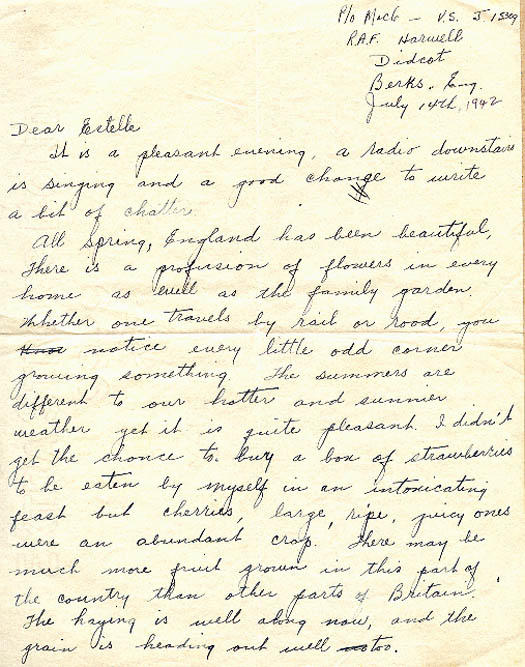 P/o Mack - V.S. J 15309
R.A.F. Harwell
Didcot
Berks. Eng.
July 14th, 1942
Dear Estelle
It is a pleasant evening, a radio downstairs
is singing and a good change to write
a bit of chatter.
All spring, England has been beautiful,
There is a profusion of flowers in every
home as well as the family garden.
Whether one travels by rail or road, you
notice every little odd corner
growing something. The summers are
different to our hotter and sunnier
weather yet it is quite pleasant. I didn't
get the chance to buy a box of strawberries
to be eaten by myself in an intoxicating
feast but cherries, large, ripe, juicy ones
were an abundant crop. There may be
much more fruit grown in this part of
the country than other parts of Britain.
The haying is well along now, and the
grain is heading out well too.